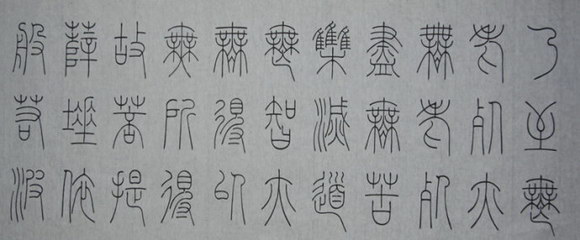 乃至無
老死亦
無老死
盡無苦
集滅道
無智亦
無得以
無所得
故菩提
薩埵依
般若波